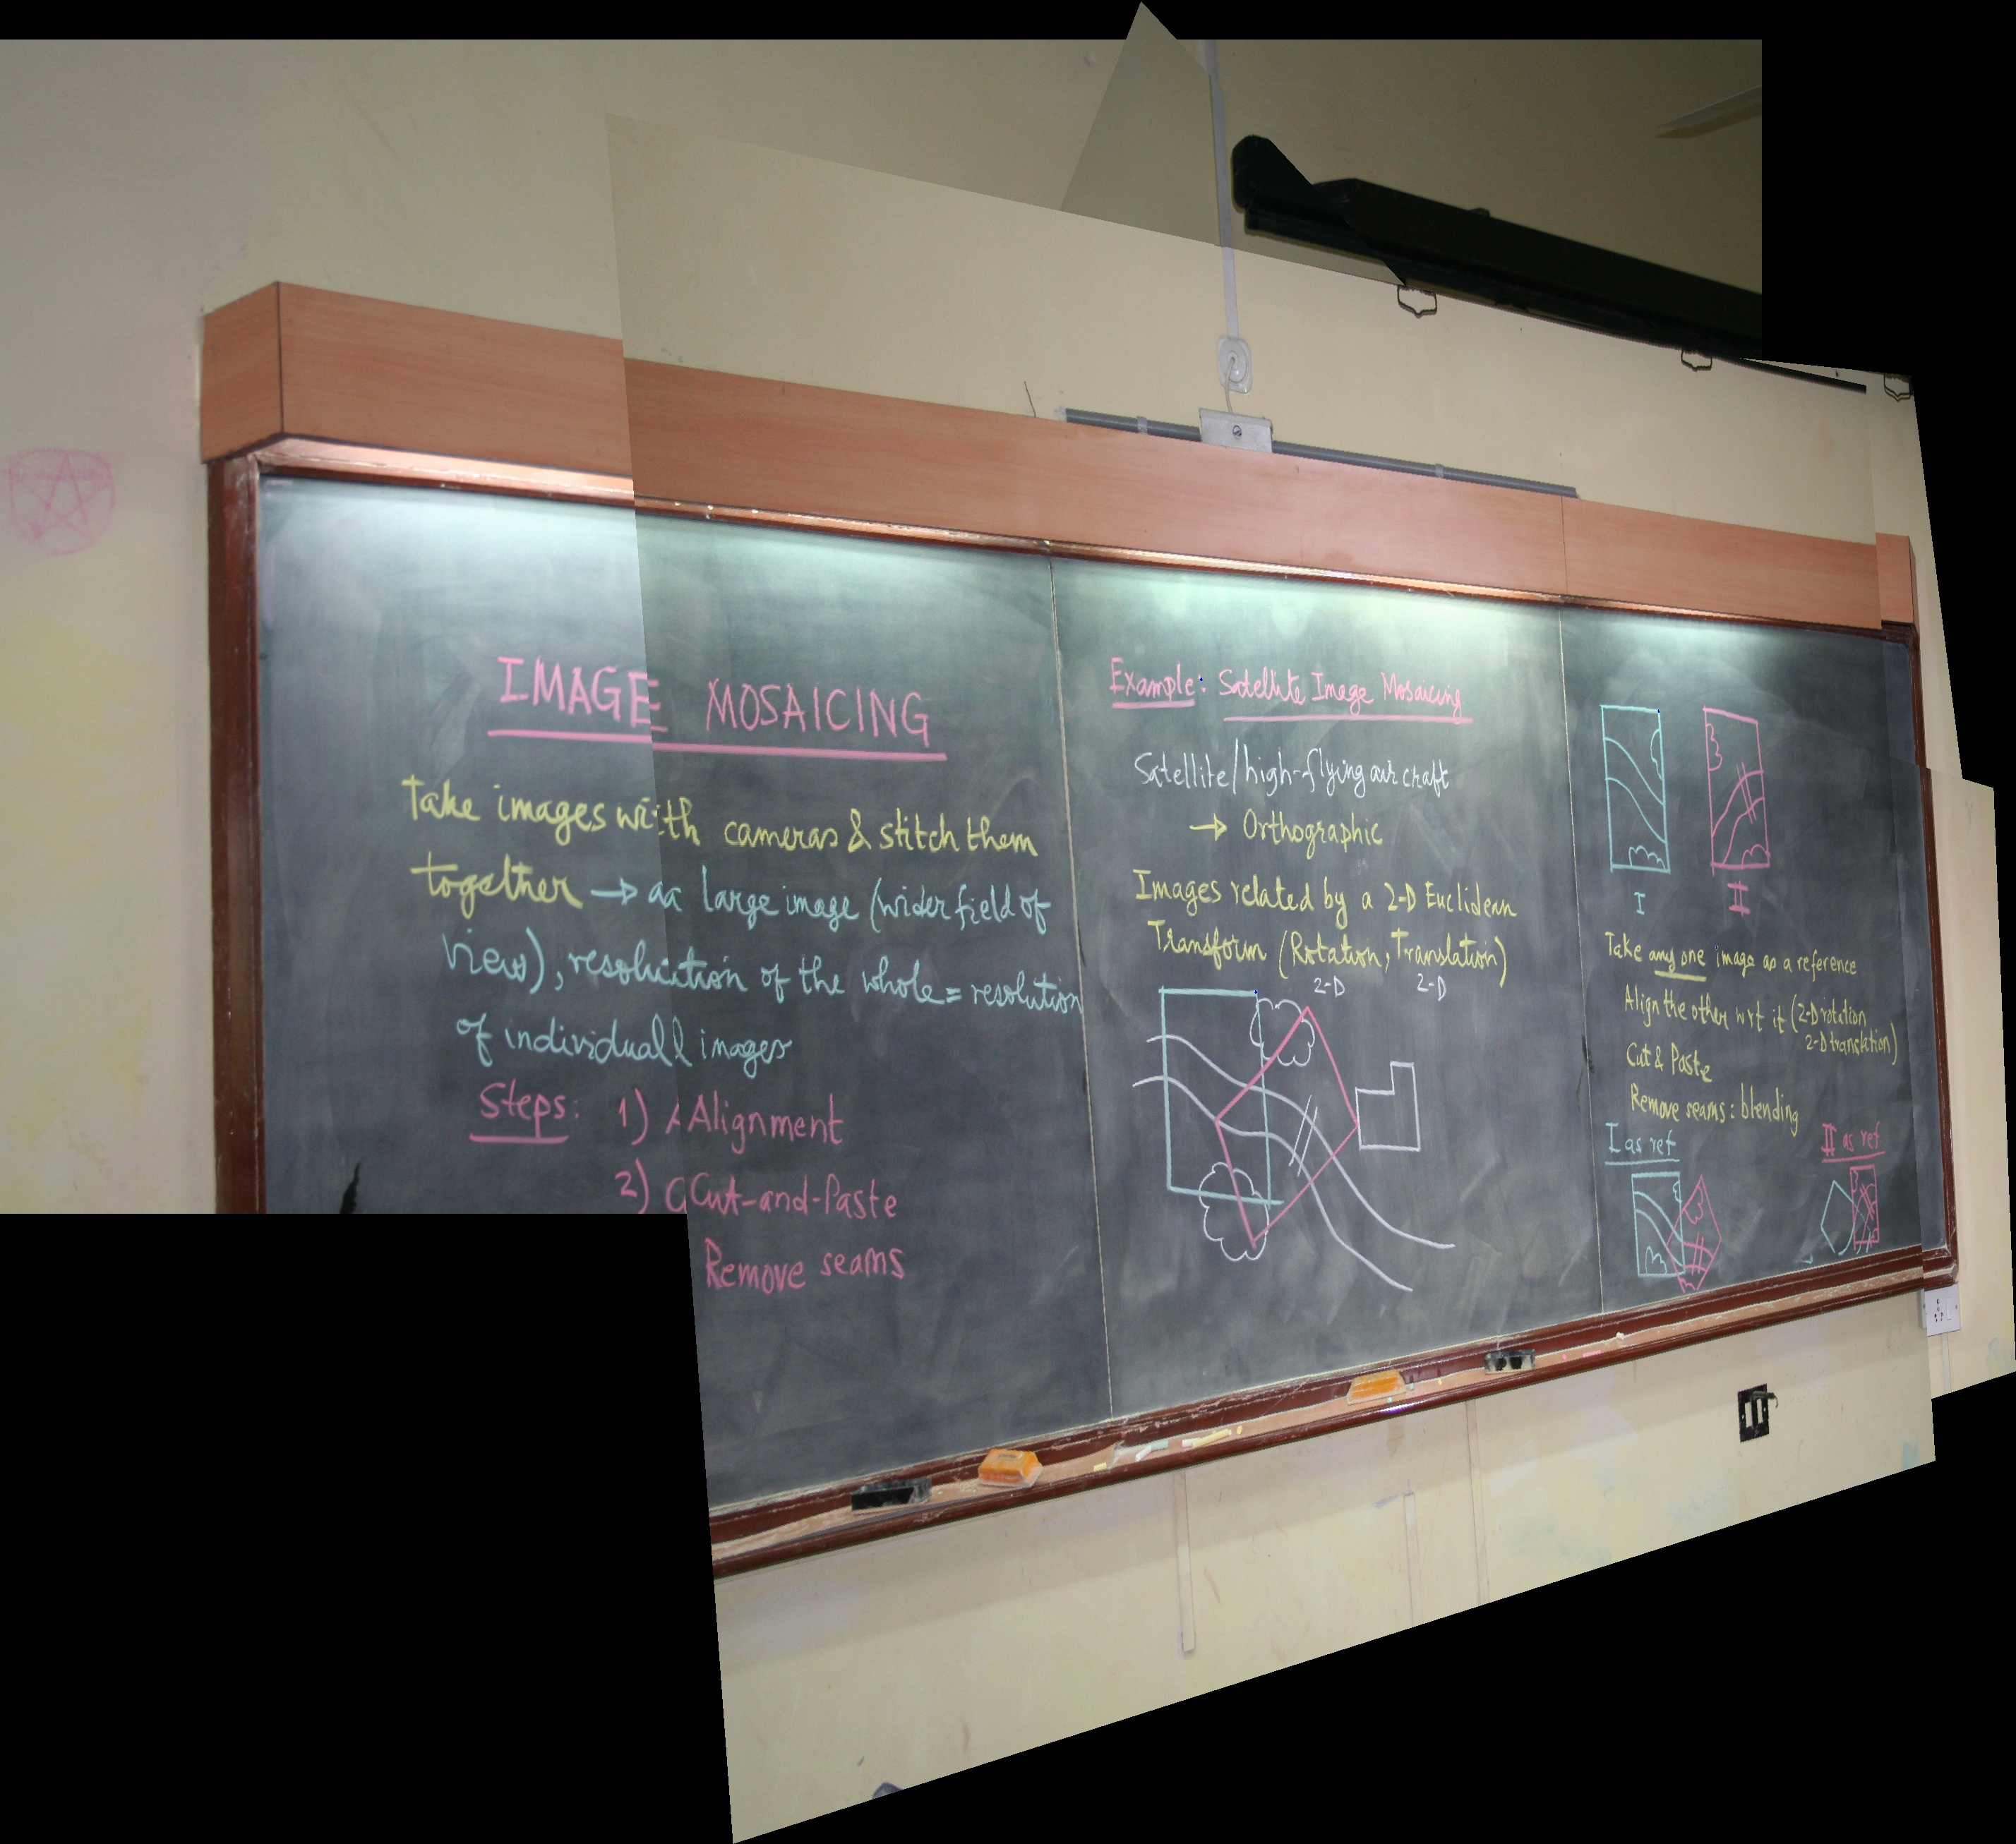 IMAGE MOSAICING
Take images with cameras & stitch them
together → a large image (wider field of
view), resolution of the whole = resolution
of individual images
Steps: 1) Alignment
2) Cut-and-Paste
Remove seams
Example: Satellite Image Mosaicing
Satellite/high-flying aircraft
→ Orthographic
Images related by a 2-D Euclidean
Transform (Rotation, Translation)
2-D 2-D
I II
Take any one image as a reference
Align the other wrt it (2-D rotation
2-D translation)
Cut & Paste
Remove seams: blending
I as ref II as ref